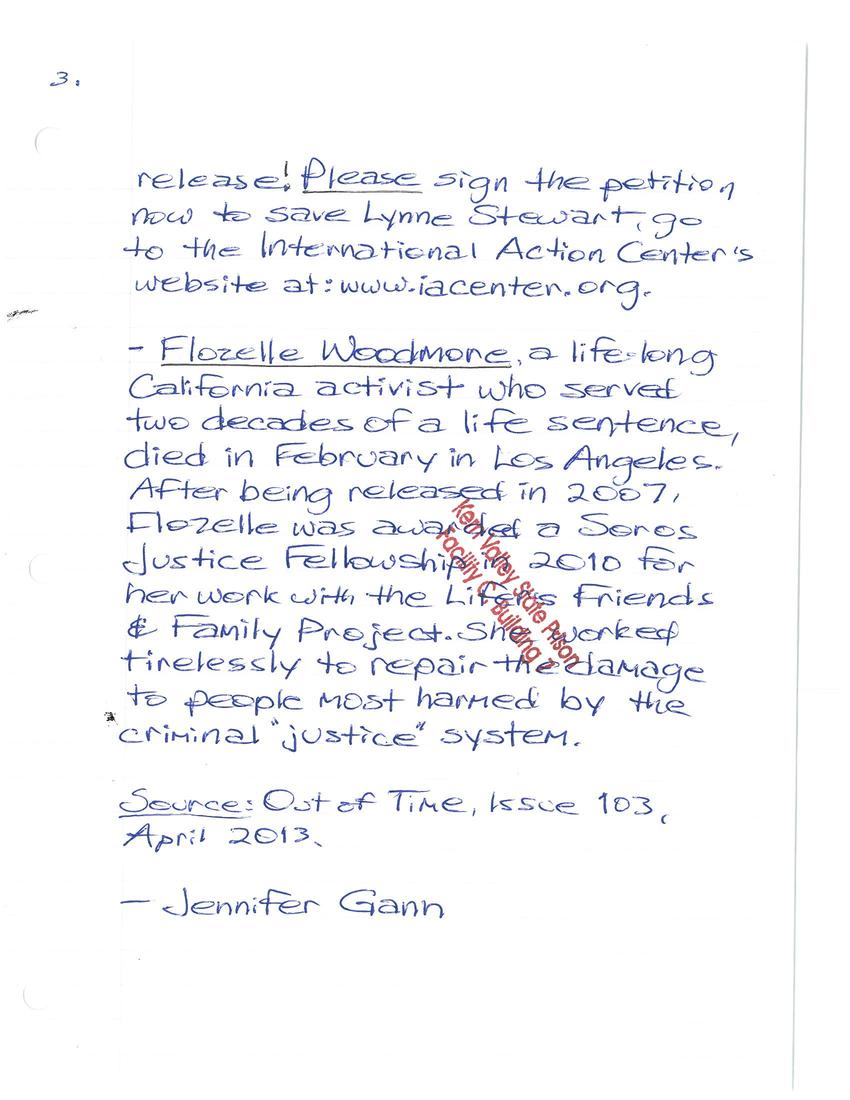 3.
release! Please sign the petition
now to save Lynne Stewart, go
to the International Action Center's
website at: www.iacenter.org.
- Florelle Woodmore, a life-long
California activist who served
two decades of a life sentence,
died in February in Los Angeles.
After being released in 2007,
Flozelle was awarded a Soros
Justice Fellowship in 2010 for
her work with the Lifers Friends
& Family Project. She worked
tirelessly to repair the damage
to people most harmed by the
criminal "justice" system.
Kern Valley State Prison
Facility C, Building 2
Source: Out of Time, Issue 103,
April 2013.
— Jennifer Gann